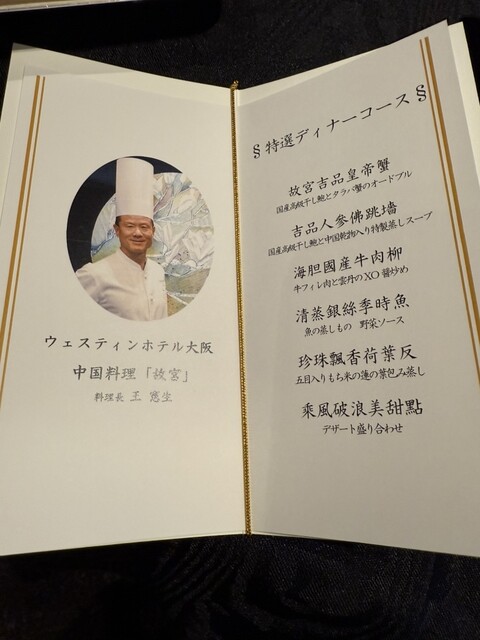 ウェスティンホテル大阪
中国料理「故宮」
料理長 王 憲生
§ 特選ディナーコース §
故宮吉品皇帝蟹
国産高級干し鮑とタラバ蟹のオードブル
吉品人參佛跳墻
国産高級干し鮑と中国乾物入り特製蒸しスープ
海胆國産牛肉柳
牛フィレ肉と雲丹のXO醤炒め
清蒸銀絲季時魚
魚の蒸しもの 野菜ソース
珍珠飄香荷葉反
五目入りもち米の蓮の葉包み蒸し
乘風破浪美甜點
デザート盛り合わせ